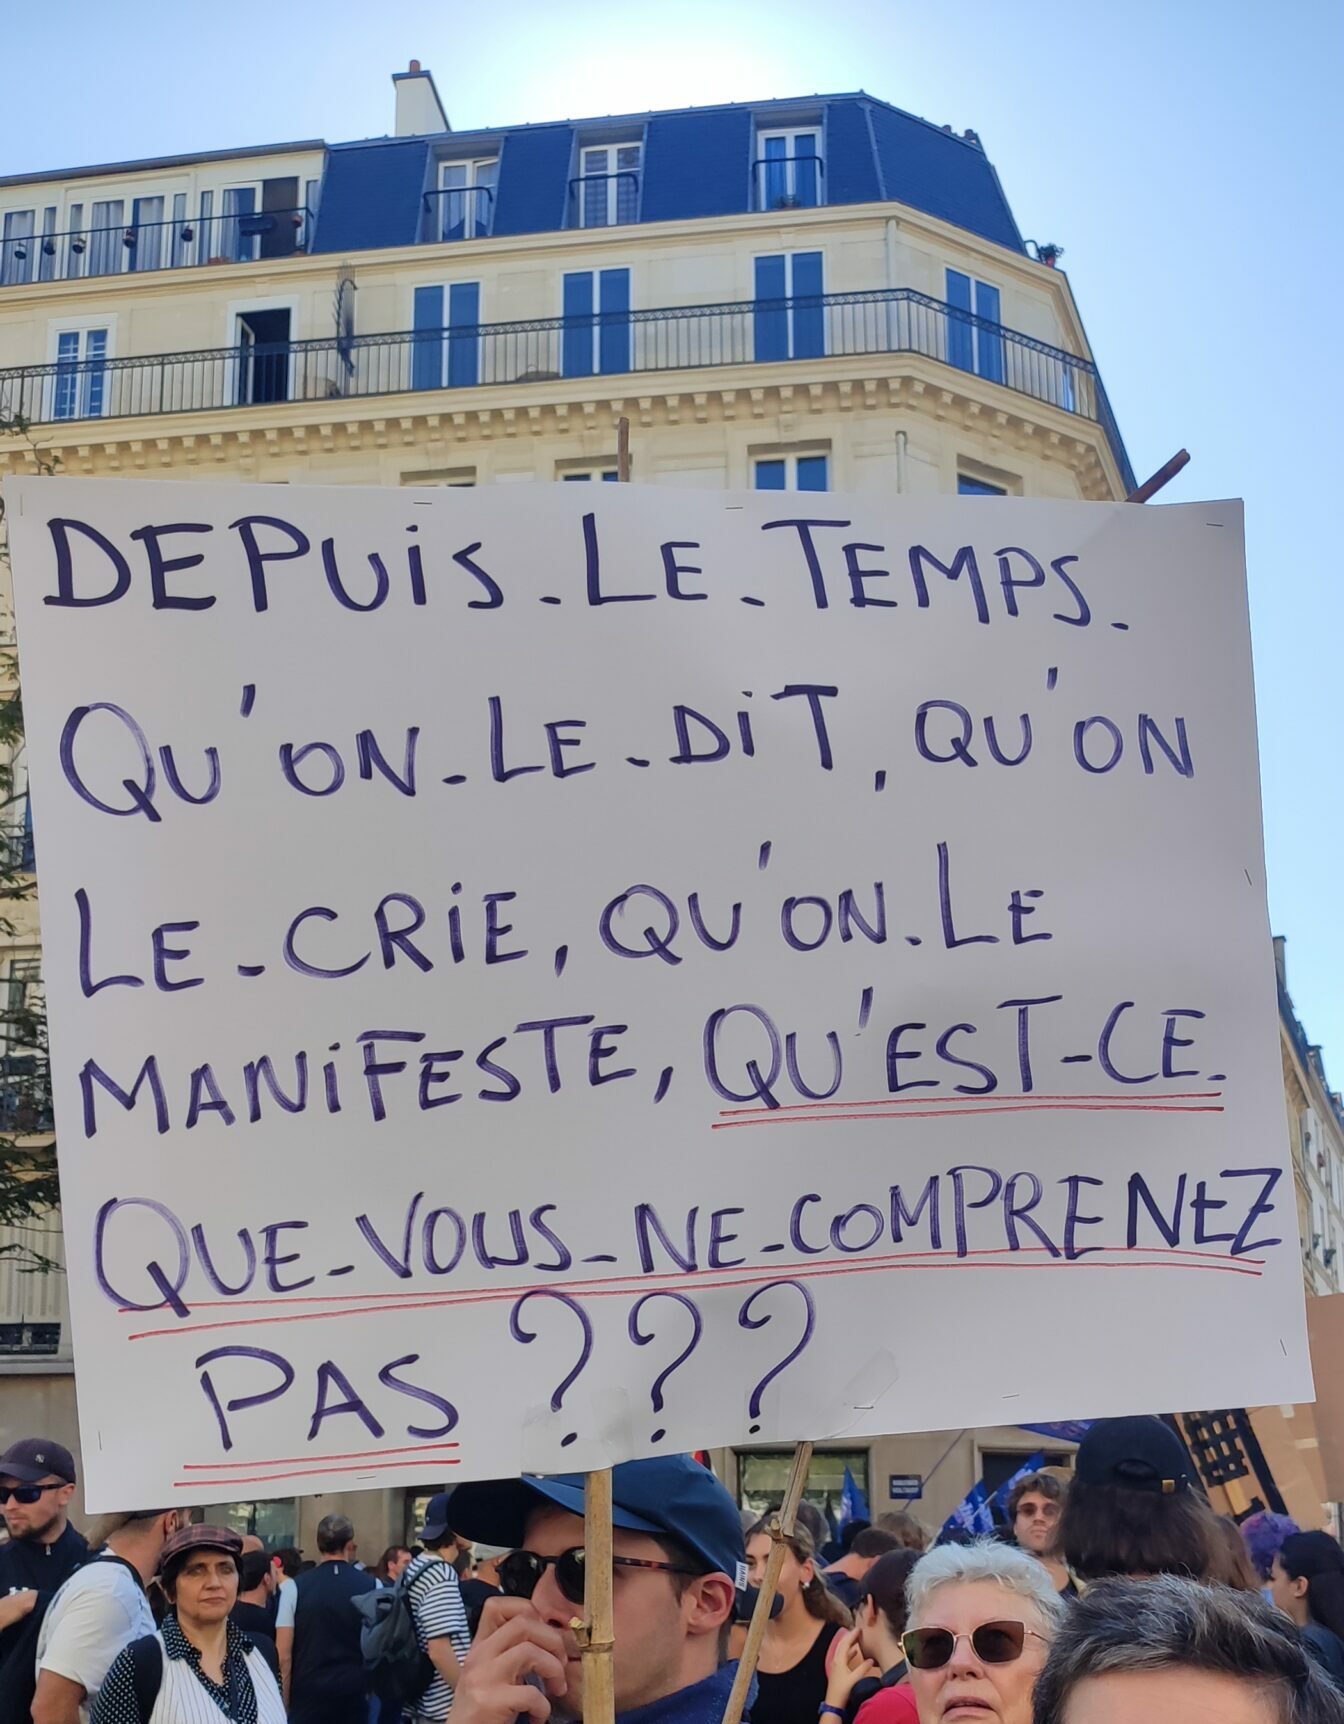 DEPUiS-LE-TEMPS-
QU'ON-LE-DiT, QU'ON
LE-CRiE, QU'ON-LE
MANiFESTE, QU'EST-CE-
QUE-VOUS-NE-COMPRENEZ
PAS ???